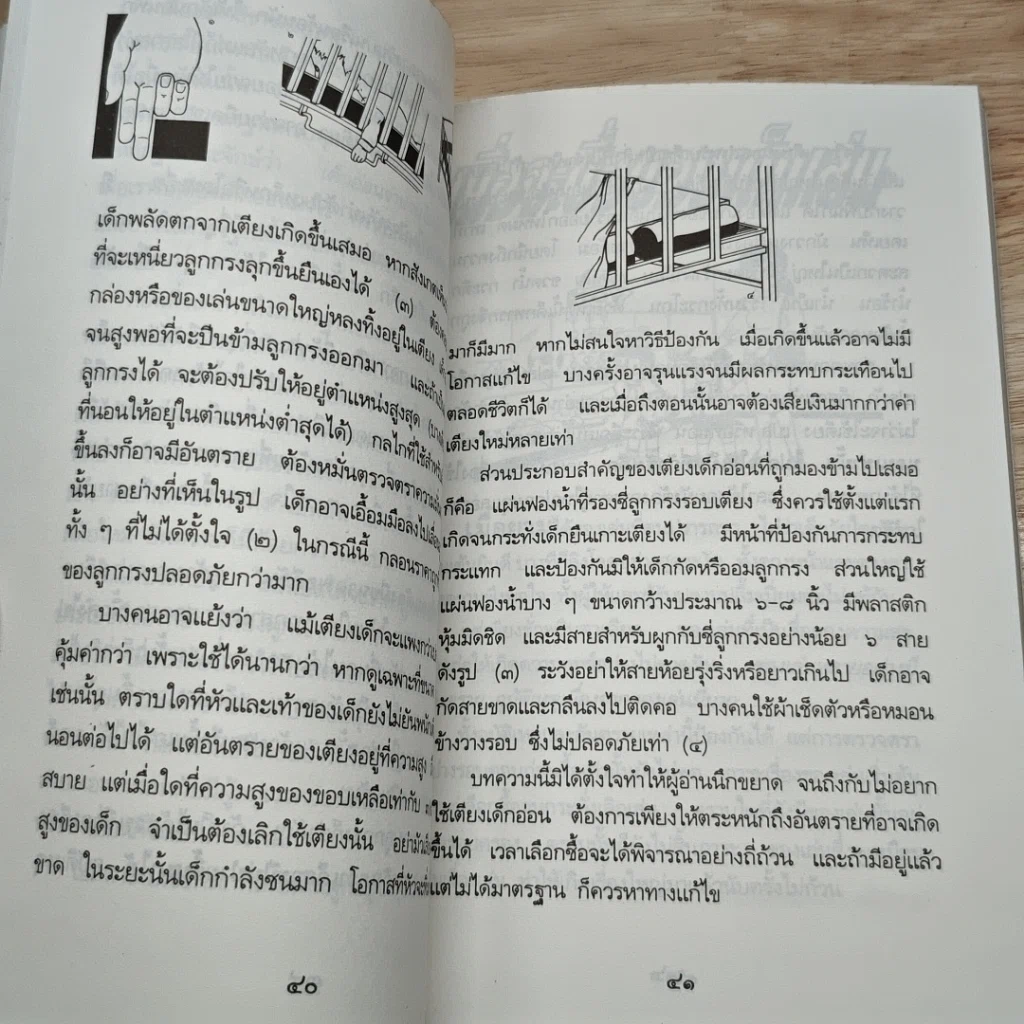 ๒
เด็กพลัดตกจากเตียงเกิดขึ้นเสมอ หากสังเกตเห็น
ที่จะเหนี่ยวลูกกรงลุกขึ้นยืนเองได้ (๓) ต้อง
กล่องหรือของเล่นขนาดใหญ่หลงทิ้งอยู่ในเตียง
จนสูงพอที่จะปีนข้ามลูกกรงออกมา และถ้า
ลูกกรงได้ จะต้องปรับให้อยู่ตำแหน่งสูงสุด
ที่นอนให้อยู่ในตำแหน่งต่ำสุดได้) กลไกที่ใช้สำหรับ
ขึ้นลงก็อาจมีอันตราย ต้องหมั่นตรวจตราความ
นั้น อย่างที่เห็นในรูป เด็กอาจเอื้อมมือลงไป
ทั้ง ๆ ที่ไม่ได้ตั้งใจ (๒) ในกรณีนี้ กลอนราคาถูก
ของลูกกรงปลอดภัยกว่ามาก
บางคนอาจแย้งว่า แม้เตียงเด็กจะแพงกว่า
คุ้มค่ากว่า เพราะใช้ได้นานกว่า หากดูเฉพาะที่ขนาด
เช่นนั้น ตราบใดที่หัวและเท้าของเด็กยังไม่ยันพนัก
นอนต่อไปได้ แต่อันตรายของเตียงอยู่ที่ความสูง
สบาย แต่เมื่อใดที่ความสูงของขอบเหลือเท่ากับ
สูงของเด็ก จำเป็นต้องเลิกใช้เตียงนั้น อย่ามัว
ขาด ในระยะนั้นเด็กกำลังซนมาก โอกาสที่หัวจะ
๔๐
๔
มาก็มีมาก หากไม่สนใจหาวิธีป้องกัน เมื่อเกิดขึ้นแล้วอาจไม่มี
โอกาสแก้ไข บางครั้งอาจรุนแรงจนมีผลกระทบกระเทือนไป
ตลอดชีวิตก็ได้ และเมื่อถึงตอนนั้นอาจต้องเสียเงินมากกว่าค่า
เตียงใหม่หลายเท่า
ส่วนประกอบสำคัญของเตียงเด็กอ่อนที่ถูกมองข้ามไปเสมอ
ก็คือ แผ่นฟองน้ำที่รองซี่ลูกกรงรอบเตียง ซึ่งควรใช้ตั้งแต่แรก
เกิดจนกระทั่งเด็กยืนเกาะเตียงได้ มีหน้าที่ป้องกันการกระทบ
กระแทก และป้องกันมิให้เด็กกัดหรืออมลูกกรง ส่วนใหญ่ใช้
แผ่นฟองน้ำบาง ๆ ขนาดกว้างประมาณ ๖-๘ นิ้ว มีพลาสติก
หุ้มมิดชิด และมีสายสำหรับผูกกับซี่ลูกกรงอย่างน้อย ๖ สาย
ดังรูป (๓) ระวังอย่าให้สายห้อยรุ่งริ่งหรือยาวเกินไป เด็กอาจ
กัดสายขาดและกลืนลงไปติดคอ บางคนใช้ผ้าเช็ดตัวหรือหมอน
ข้างวางรอบ ซึ่งไม่ปลอดภัยเท่า (๔)
บทความนี้มิได้ตั้งใจทำให้ผู้อ่านนึกขยาด จนถึงกับไม่อยาก
ใช้เตียงเด็กอ่อน ต้องการเพียงให้ตระหนักถึงอันตรายที่อาจเกิด
ขึ้นได้ เวลาเลือกซื้อจะได้พิจารณาอย่างถี่ถ้วน และถ้ามีอยู่แล้ว
แต่ไม่ได้มาตรฐาน ก็ควรหาทางแก้ไข
๔๑